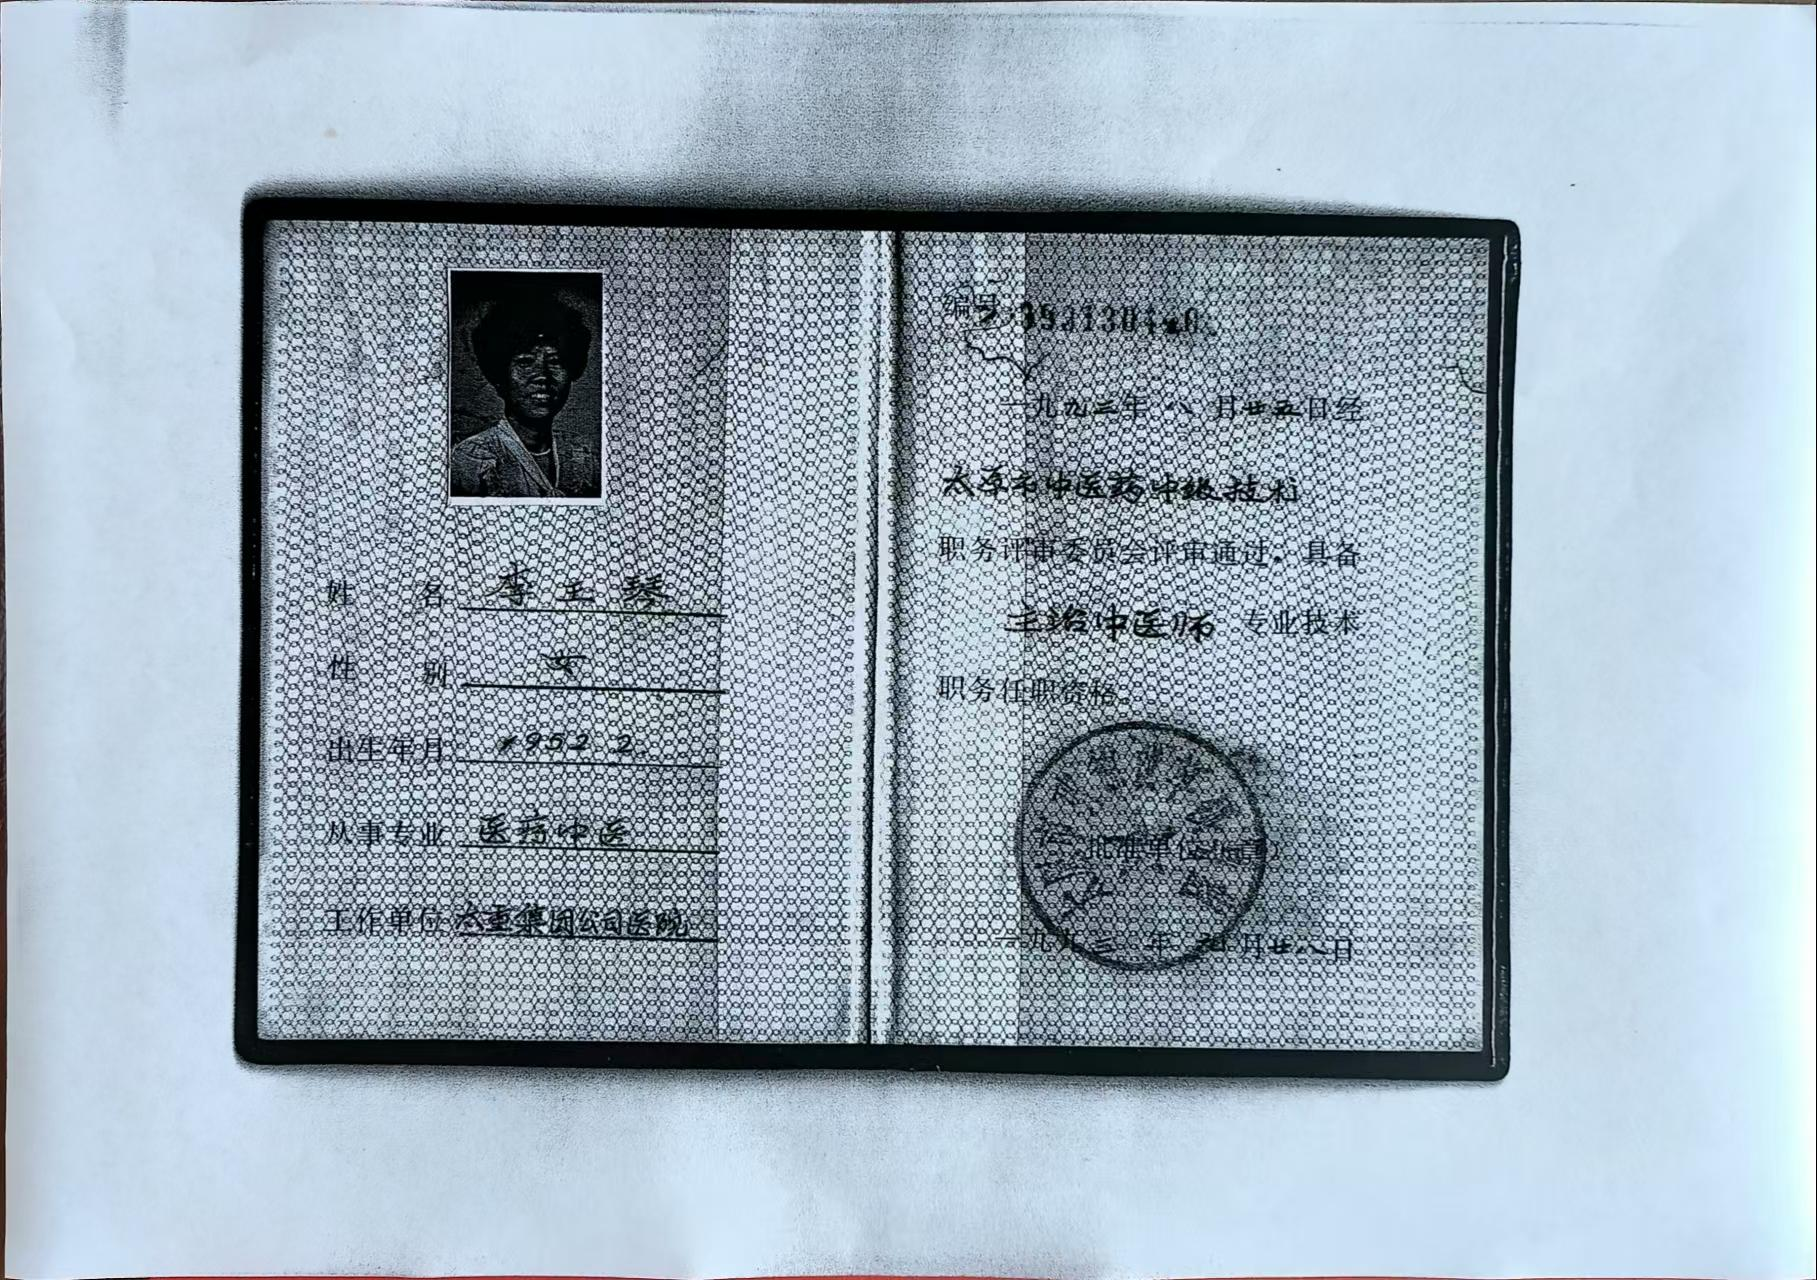 姓 名 李玉琴
性 别 女
出生年月 1952.2.
从事专业 医疗中医
工作单位 太重集团公司医院
编号
一九九三年 八 月廿五日经
太原市中医药中级技术
职务评审委员会评审通过，具备
主治中医师 专业技术
职务任职资格。
批准单位
一九九三 年 月廿八日